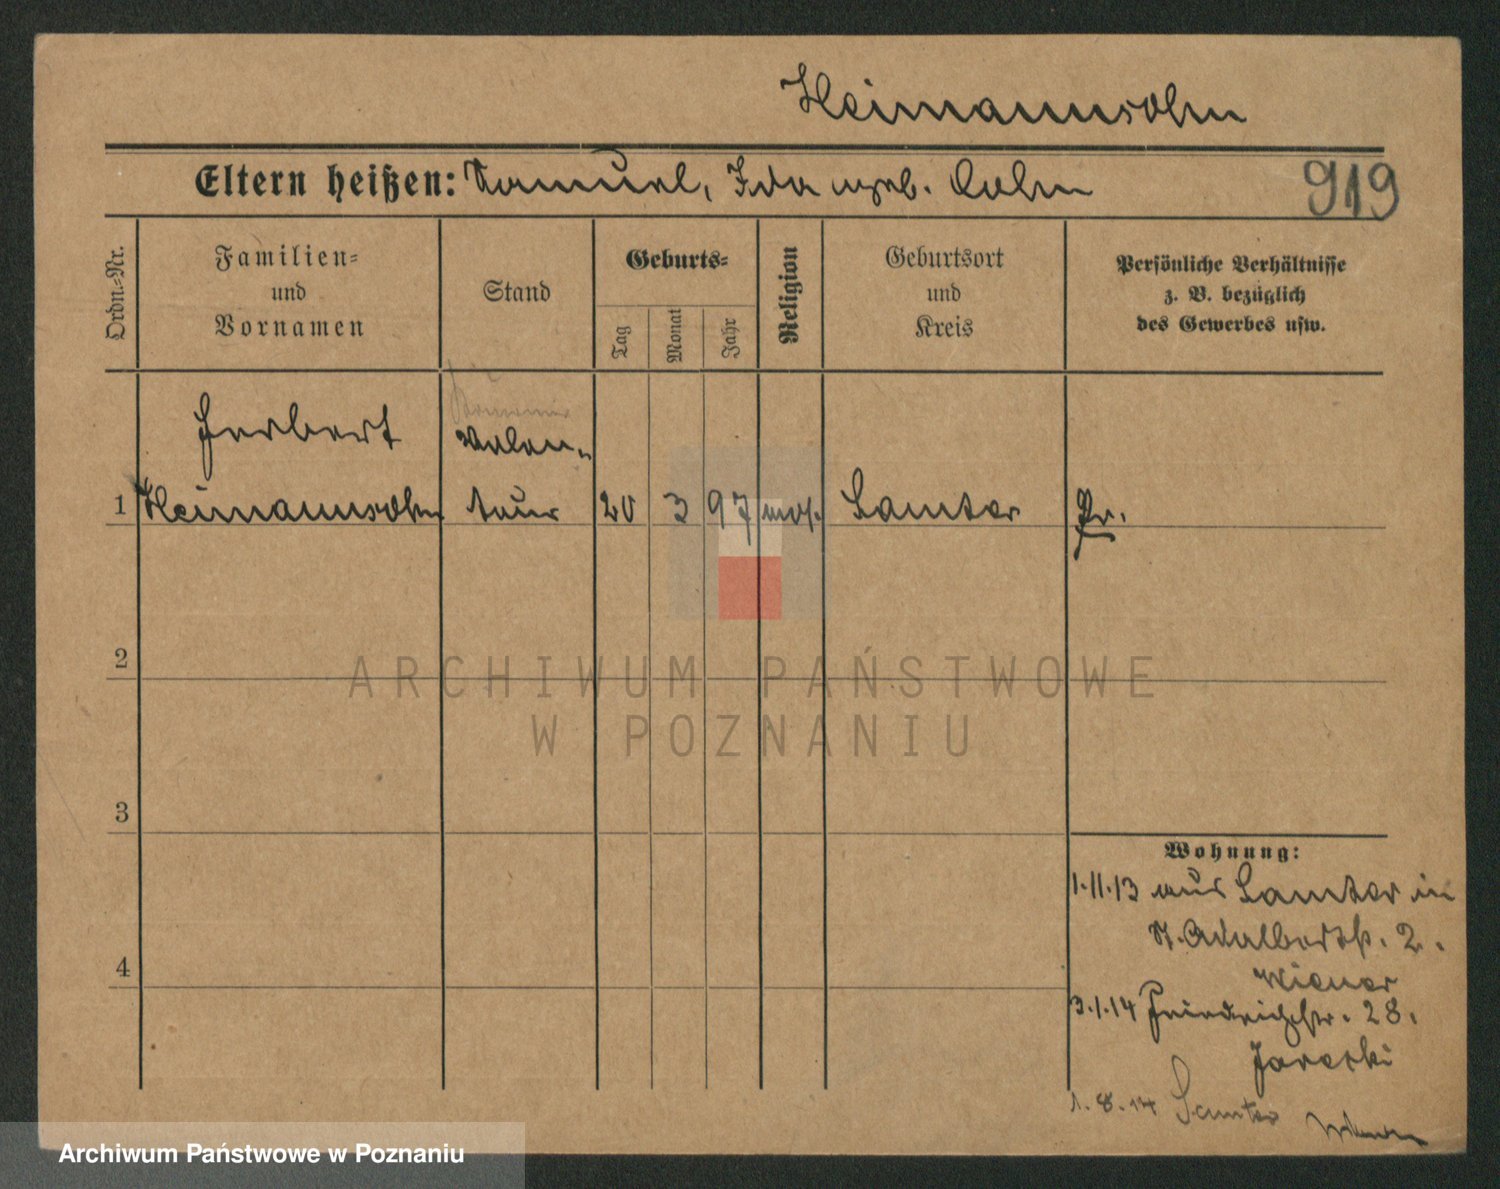 Heimannsohn
Eltern heißen: Samuel, Ida geb. Cohn
919
Ordn.-Nr.
Familien-
und
Vornamen
Stand
Geburts-
Tag
Monat
Jahr
Religion
Geburtsort
und
Kreis
Persönliche Verhältnisse
z. B. bezüglich
des Gewerbes usw.
Herbert
Volon-
1 Heimannsohn teur 20 3 97 mos. Samter Pr.
2
3
4
ARCHIWUM PAŃSTWOWE
W POZNANIU
Wohnung:
1.11.13 aus Samter in
St. Adalbertstr. 2.
Wiener
3.1.14 Friedrichstr. 28.
Jaretzki
1.8.14 Samter
Archiwum Państwowe w Poznaniu